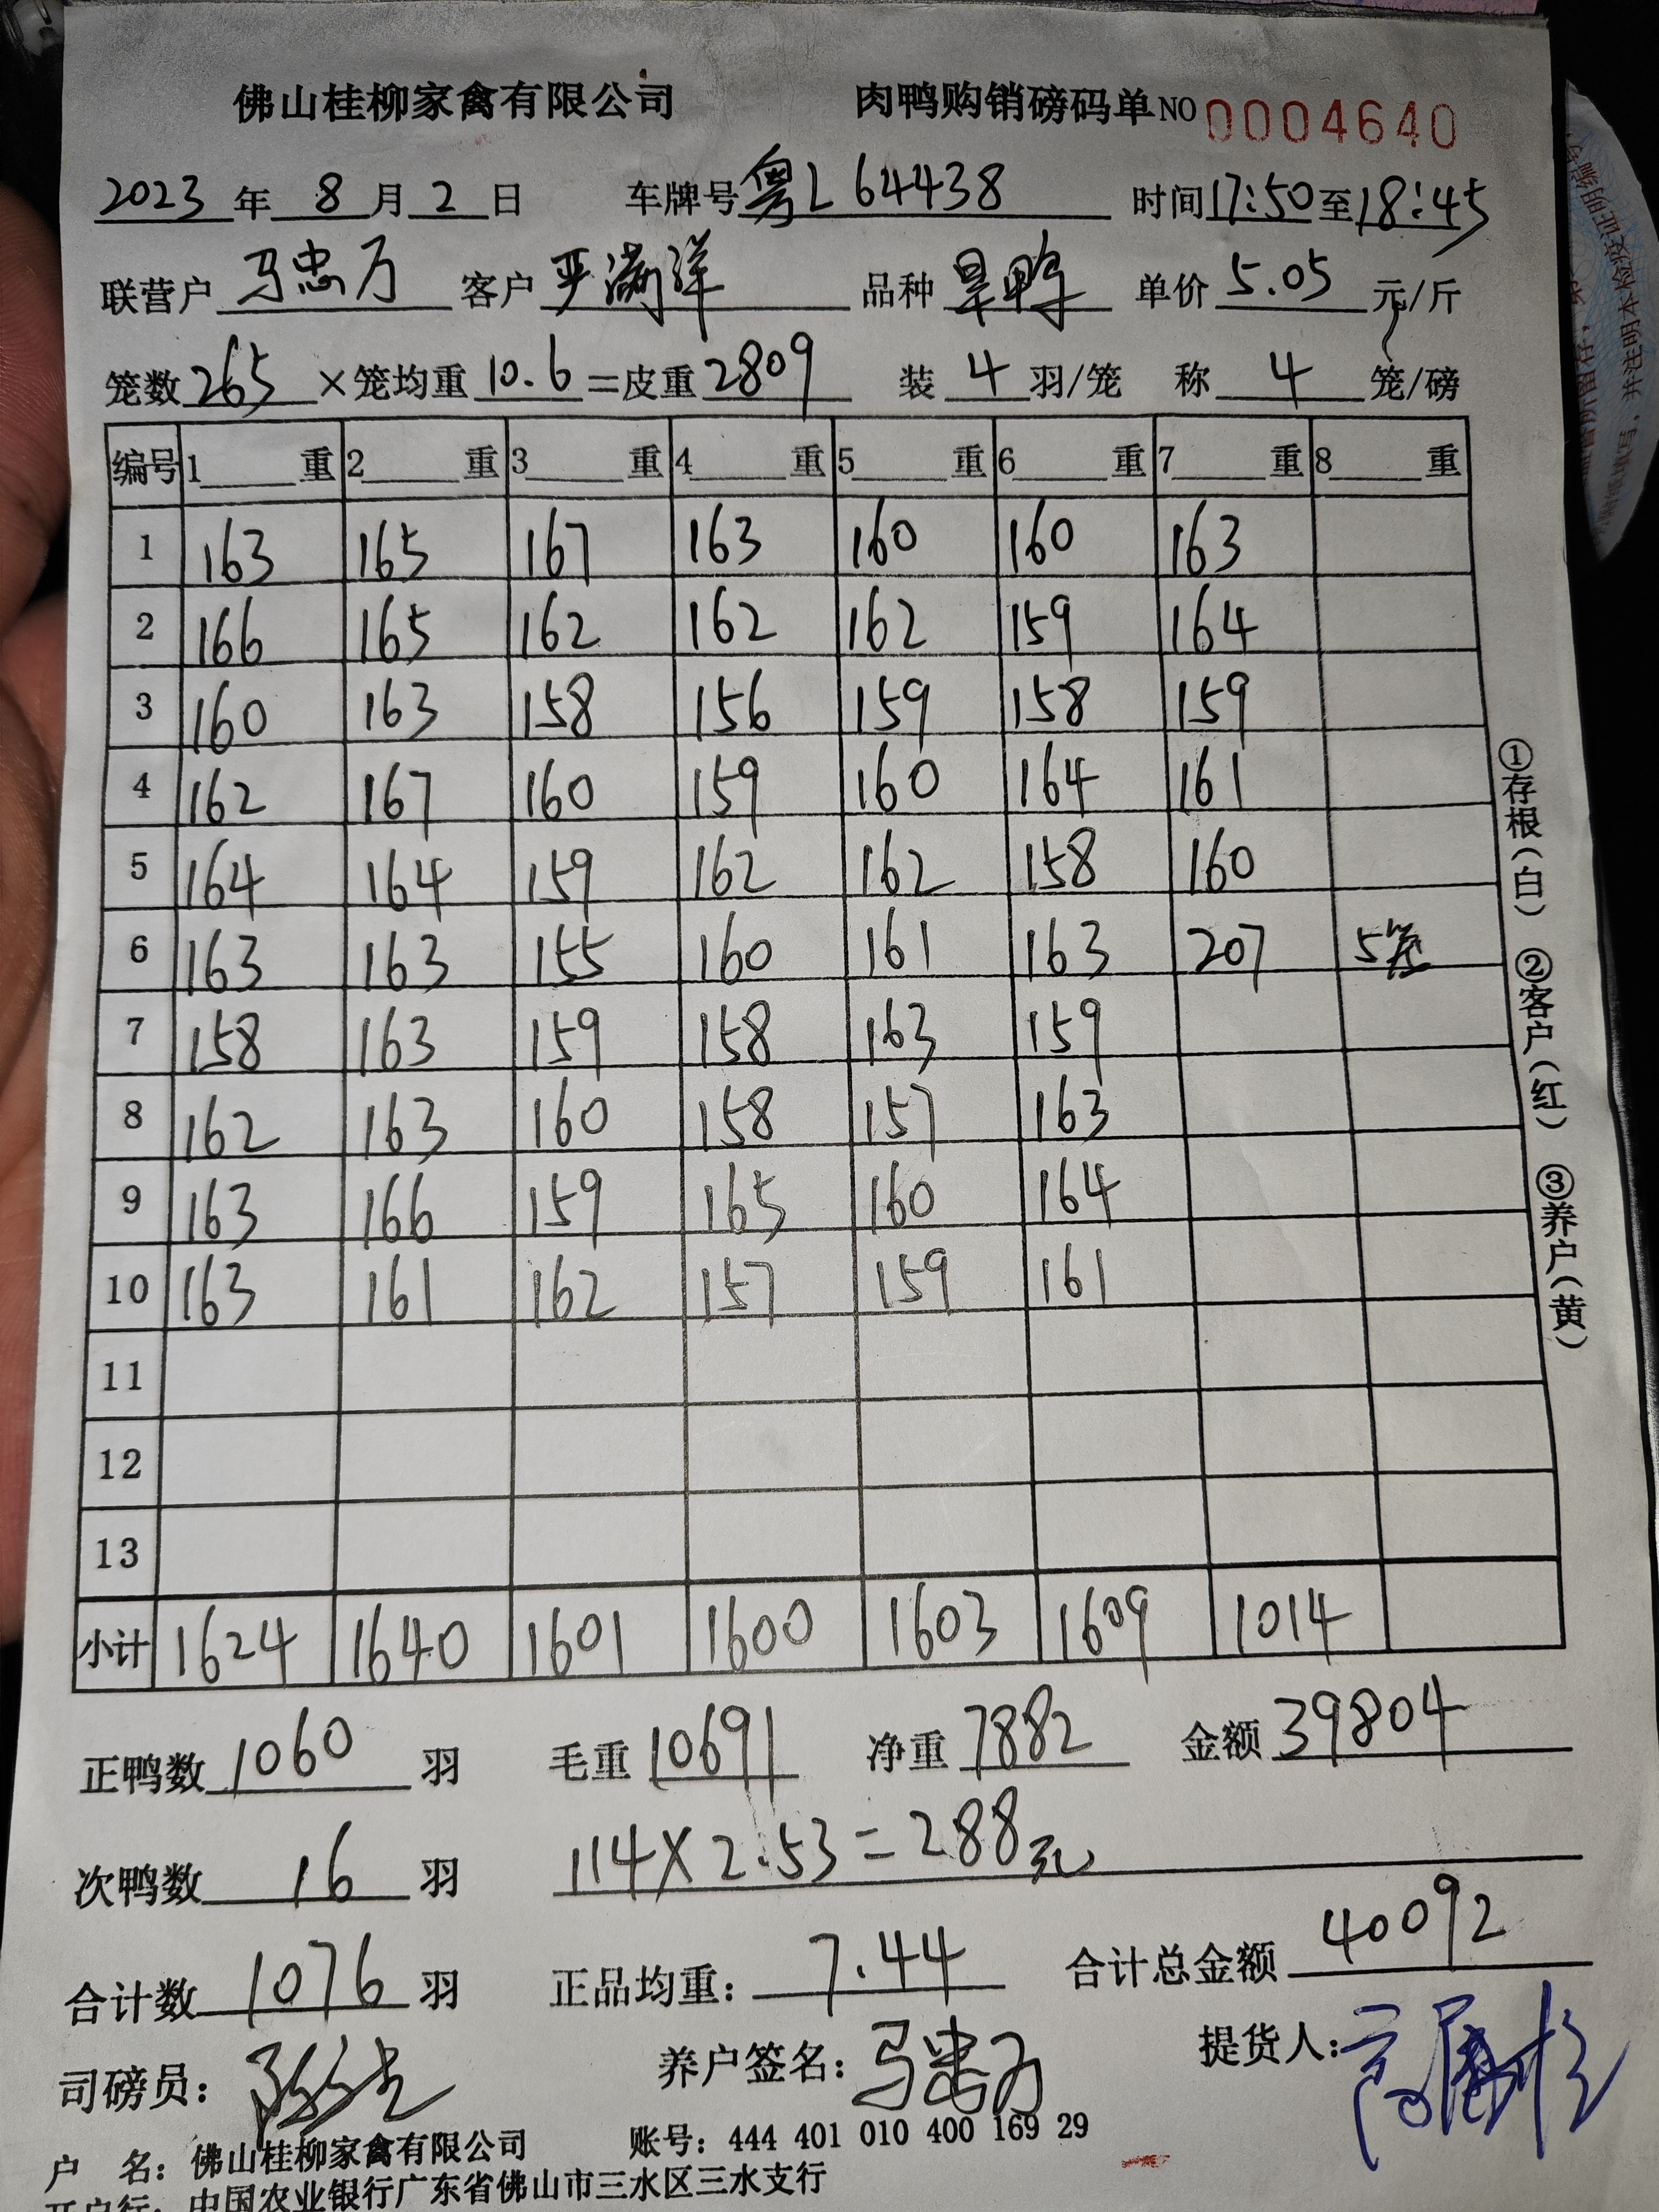 佛山桂柳家禽有限公司 肉鸭购销磅码单 NO 0004640
2023 年 8 月 2 日 车牌号 粤L 64438 时间 17:50 至 18:45
联营户 马忠万 客户 严满洋 品种 旱鸭 单价 5.05 元/斤
笼数 265 ×笼均重 10.6 =皮重 2809 装 4 羽/笼 称 4 笼/磅
编号 1 重 2 重 3 重 4 重 5 重 6 重 7 重 8 重
1 163 165 167 163 160 160 163
2 166 165 162 162 162 159 164
3 160 163 158 156 159 158 159
4 162 167 160 159 160 164 161
5 164 164 159 162 162 158 160
6 163 163 155 160 161 163 207 5笼
7 158 163 159 158 163 159
8 162 163 160 158 157 163
9 163 166 159 165 160 164
10 163 161 162 157 159 161
11
12
13
小计 1624 1640 1601 1600 1603 1609 1014
①存根(白) ②客户(红) ③养户(黄)
正鸭数 1060 羽 毛重 10691 净重 7882 金额 39804
次鸭数 16 羽 114×2.53=288元
合计数 1076 羽 正品均重: 7.44 合计总金额 40092
司磅员: 养户签名: 马忠万 提货人:
户 名: 佛山桂柳家禽有限公司 账号: 444 401 010 400 169 29
开户行: 中国农业银行广东省佛山市三水区三水支行